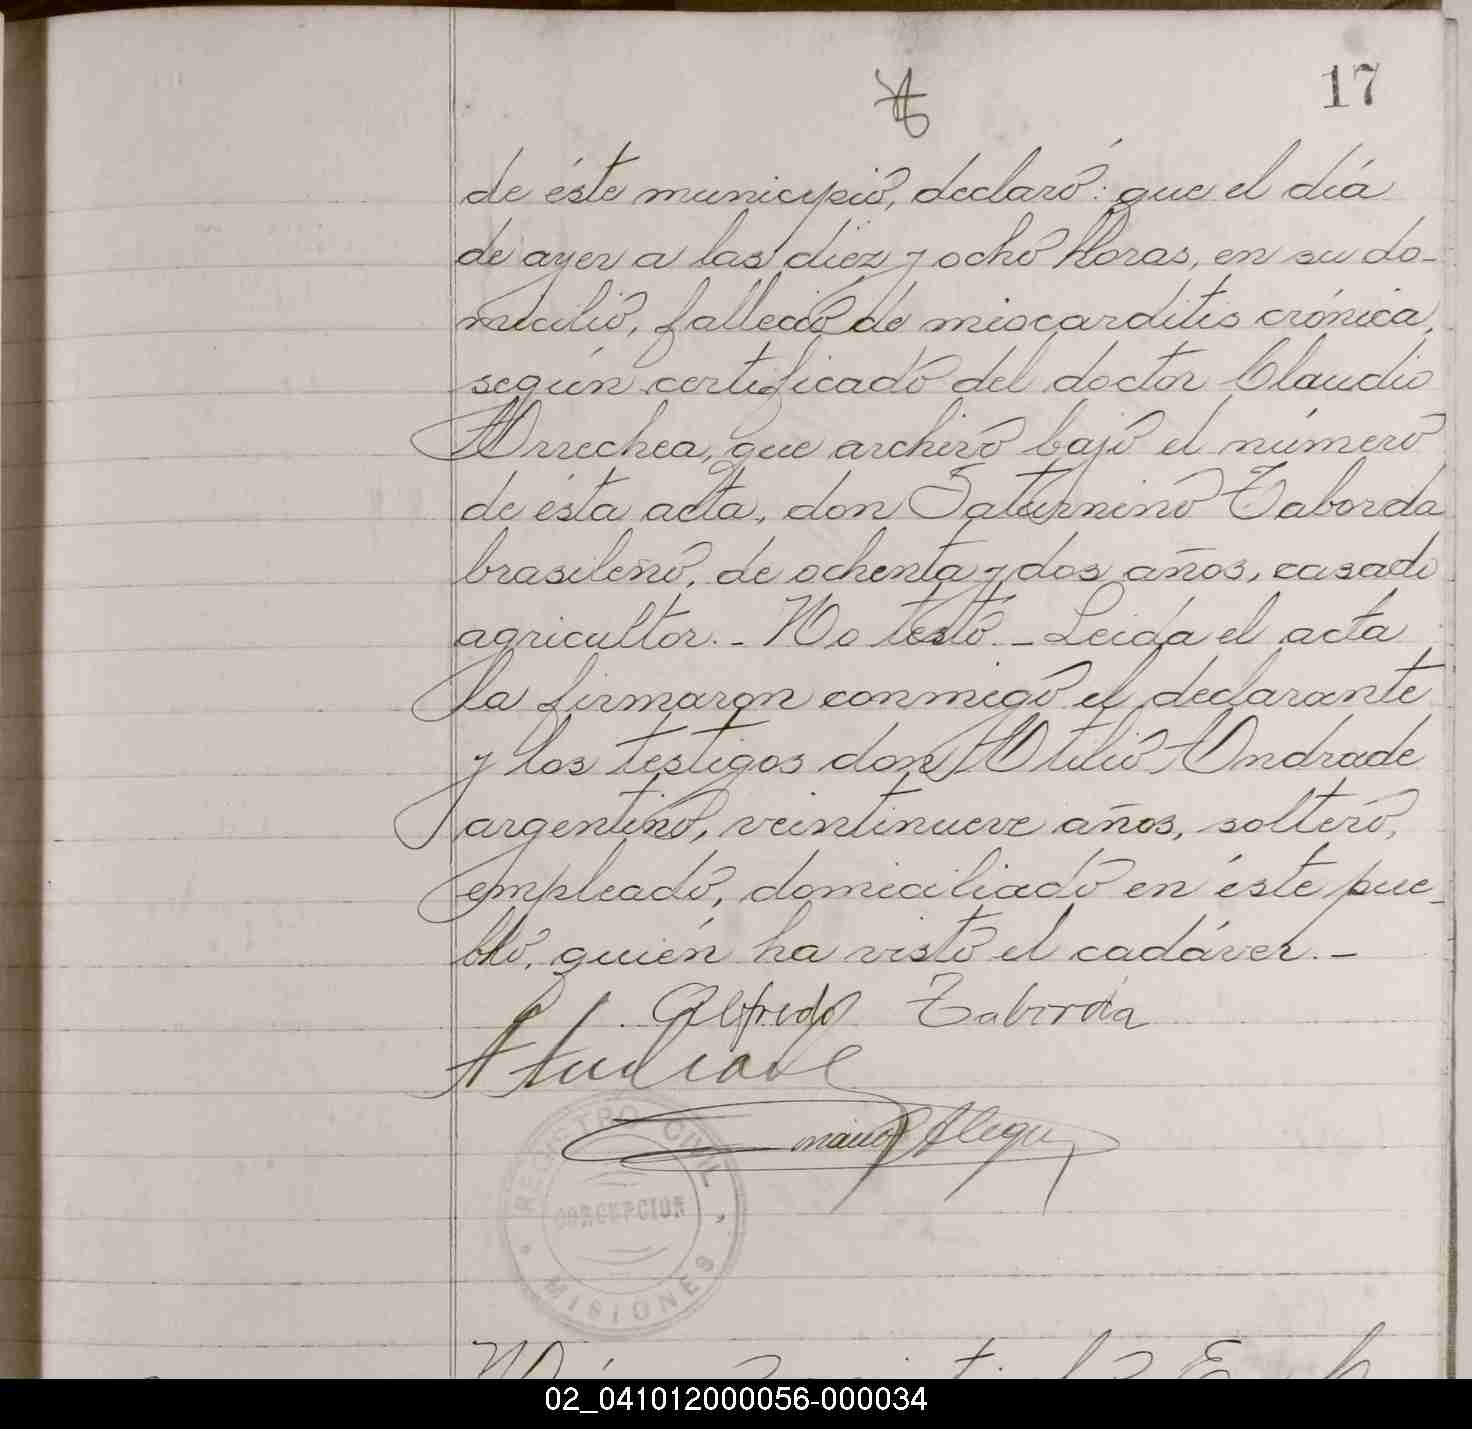 17
de éste municipio, declaró: que el día
de ayer a las diez y ocho horas, en su do-
micilio, falleció de miocarditis crónica,
según certificado del doctor Claudio
Arrechea, que archivo bajo el número
de ésta acta, don Saturnino Taborda
brasileño, de ochenta y dos años, casado
agricultor.- No testó.- Leida el acta
la firmaron conmigo el declarante
y los testigos don Otilio Andrade
argentino, veintinueve años, soltero,
empleado, domiciliado en éste pue-
blo, quién ha visto el cadáver.-
Alfredo Taborda
REGISTRO CIVIL
CONCEPCION
MISIONES
02_041012000056-000034